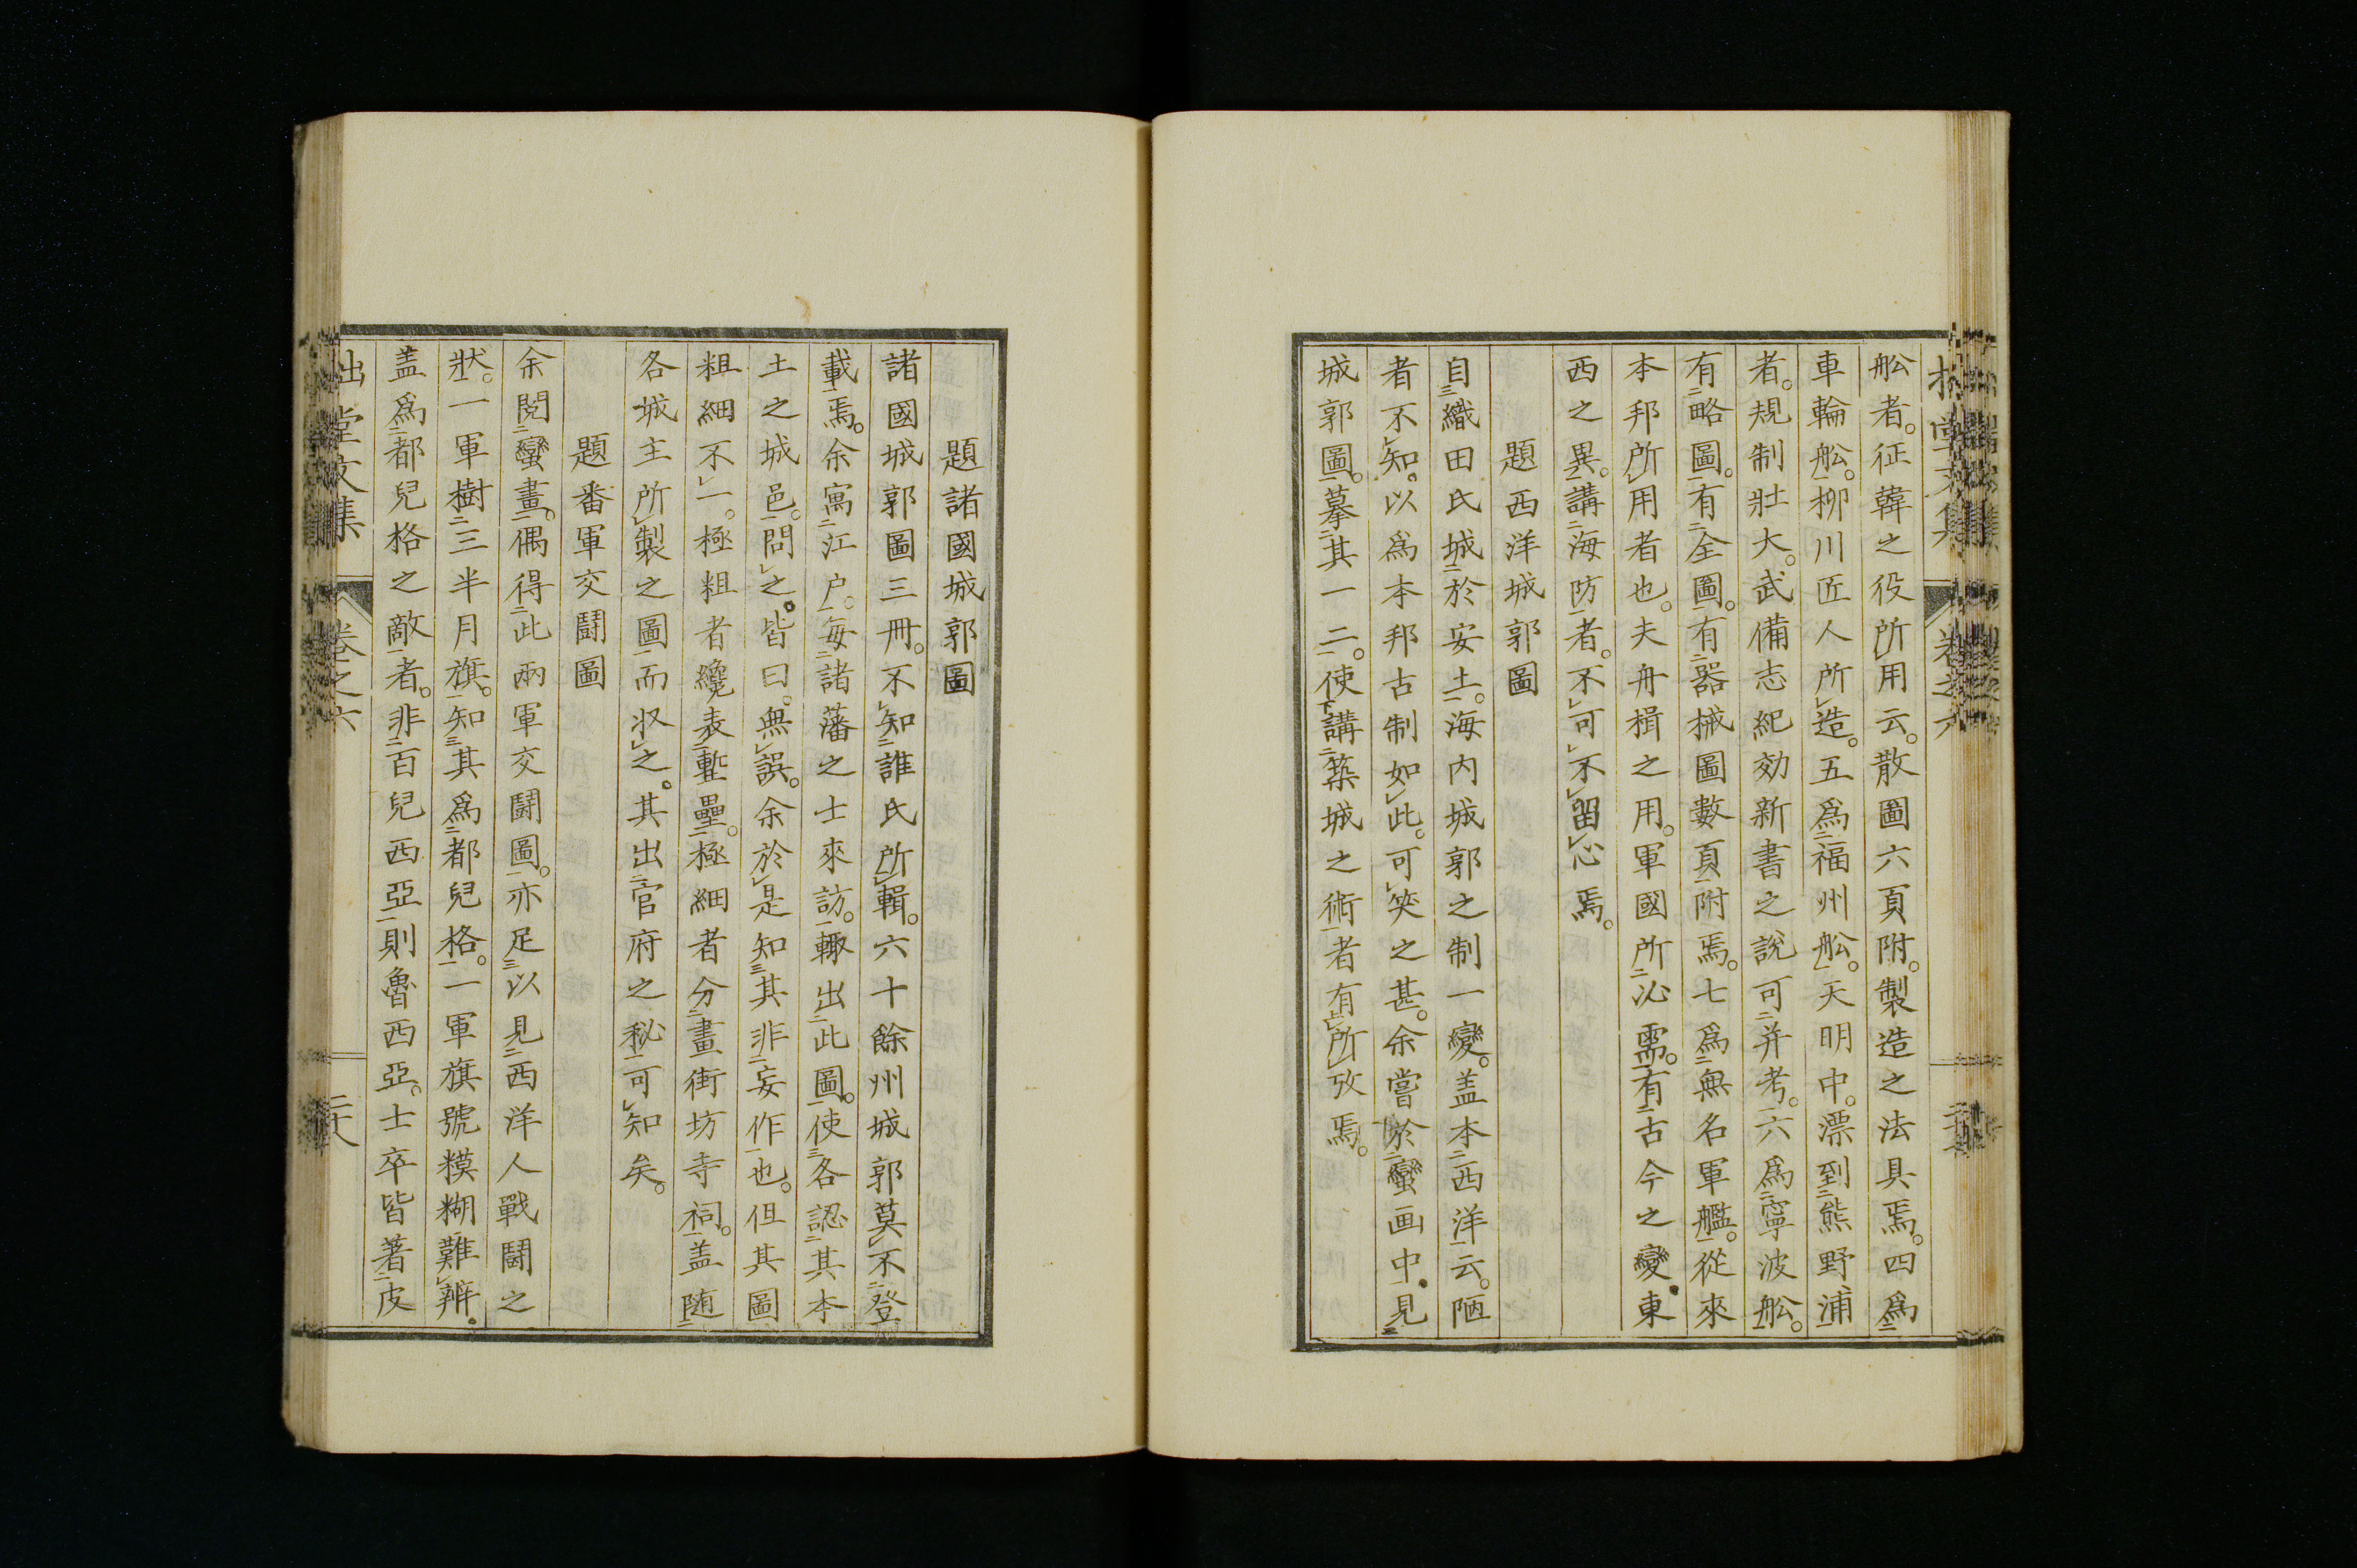 舩者。征韓之役所用云。散圖六頁附。製造之法具焉。四爲
車輪舩。柳川匠人所造。五爲福州舩。天明中。漂到熊野浦
者。規制壯大。武備志紀効新書之說可并考。六爲寧波舩。
有略圖。有全圖。有器械圖數頁附焉。七爲無名軍艦。從來
本邦所用者也。夫舟楫之用。軍國所必需。有古今之變。東
西之異。講海防者。不可不留心焉。
題西洋城郭圖
自織田氏城於安土。海内城郭之制一變。盖本西洋云。陋
者不知。以爲本邦古制如此。可笑之甚。余嘗於蠻画中。見
城郭圖。摹其一二。使講築城之術者有所攷焉。
題諸國城郭圖
諸國城郭圖三冊。不知誰氏所輯。六十餘州城郭莫不登
載焉。余寓江戸。每諸藩之士來訪。輙出此圖。使各認其本
土之城邑。問之。皆曰。無誤。余於是知其非妄作也。但其圖
粗細不一。極粗者纔表塹壘。極細者分畫街坊寺祠。盖随
各城主所製之圖而収之。其出官府之秘可知矣。
題番軍交鬪圖
余閱蠻畫。偶得此兩軍交鬪圖。亦足以見西洋人戰鬪之
狀。一軍樹三半月旗。知其爲都兒格。一軍旗號糢糊難辨。
盖爲都兒格之敵者。非百兒西亞則魯西亞。士卒皆著皮
堂文集 卷之六